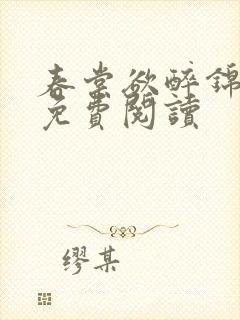 春棠欲醉錦
免費閱讀
繆某